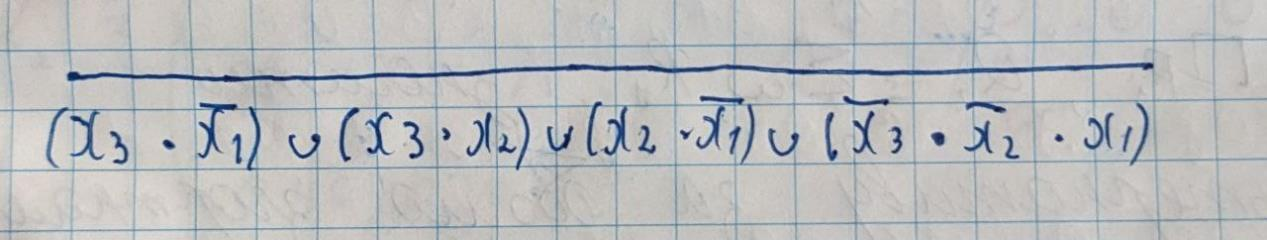 (x₃ · x̅₁) ∪ (x₃ · x₂) ∪ (x₂ · x̅₁) ∪ (x̅₃ · x̅₂ · x₁)